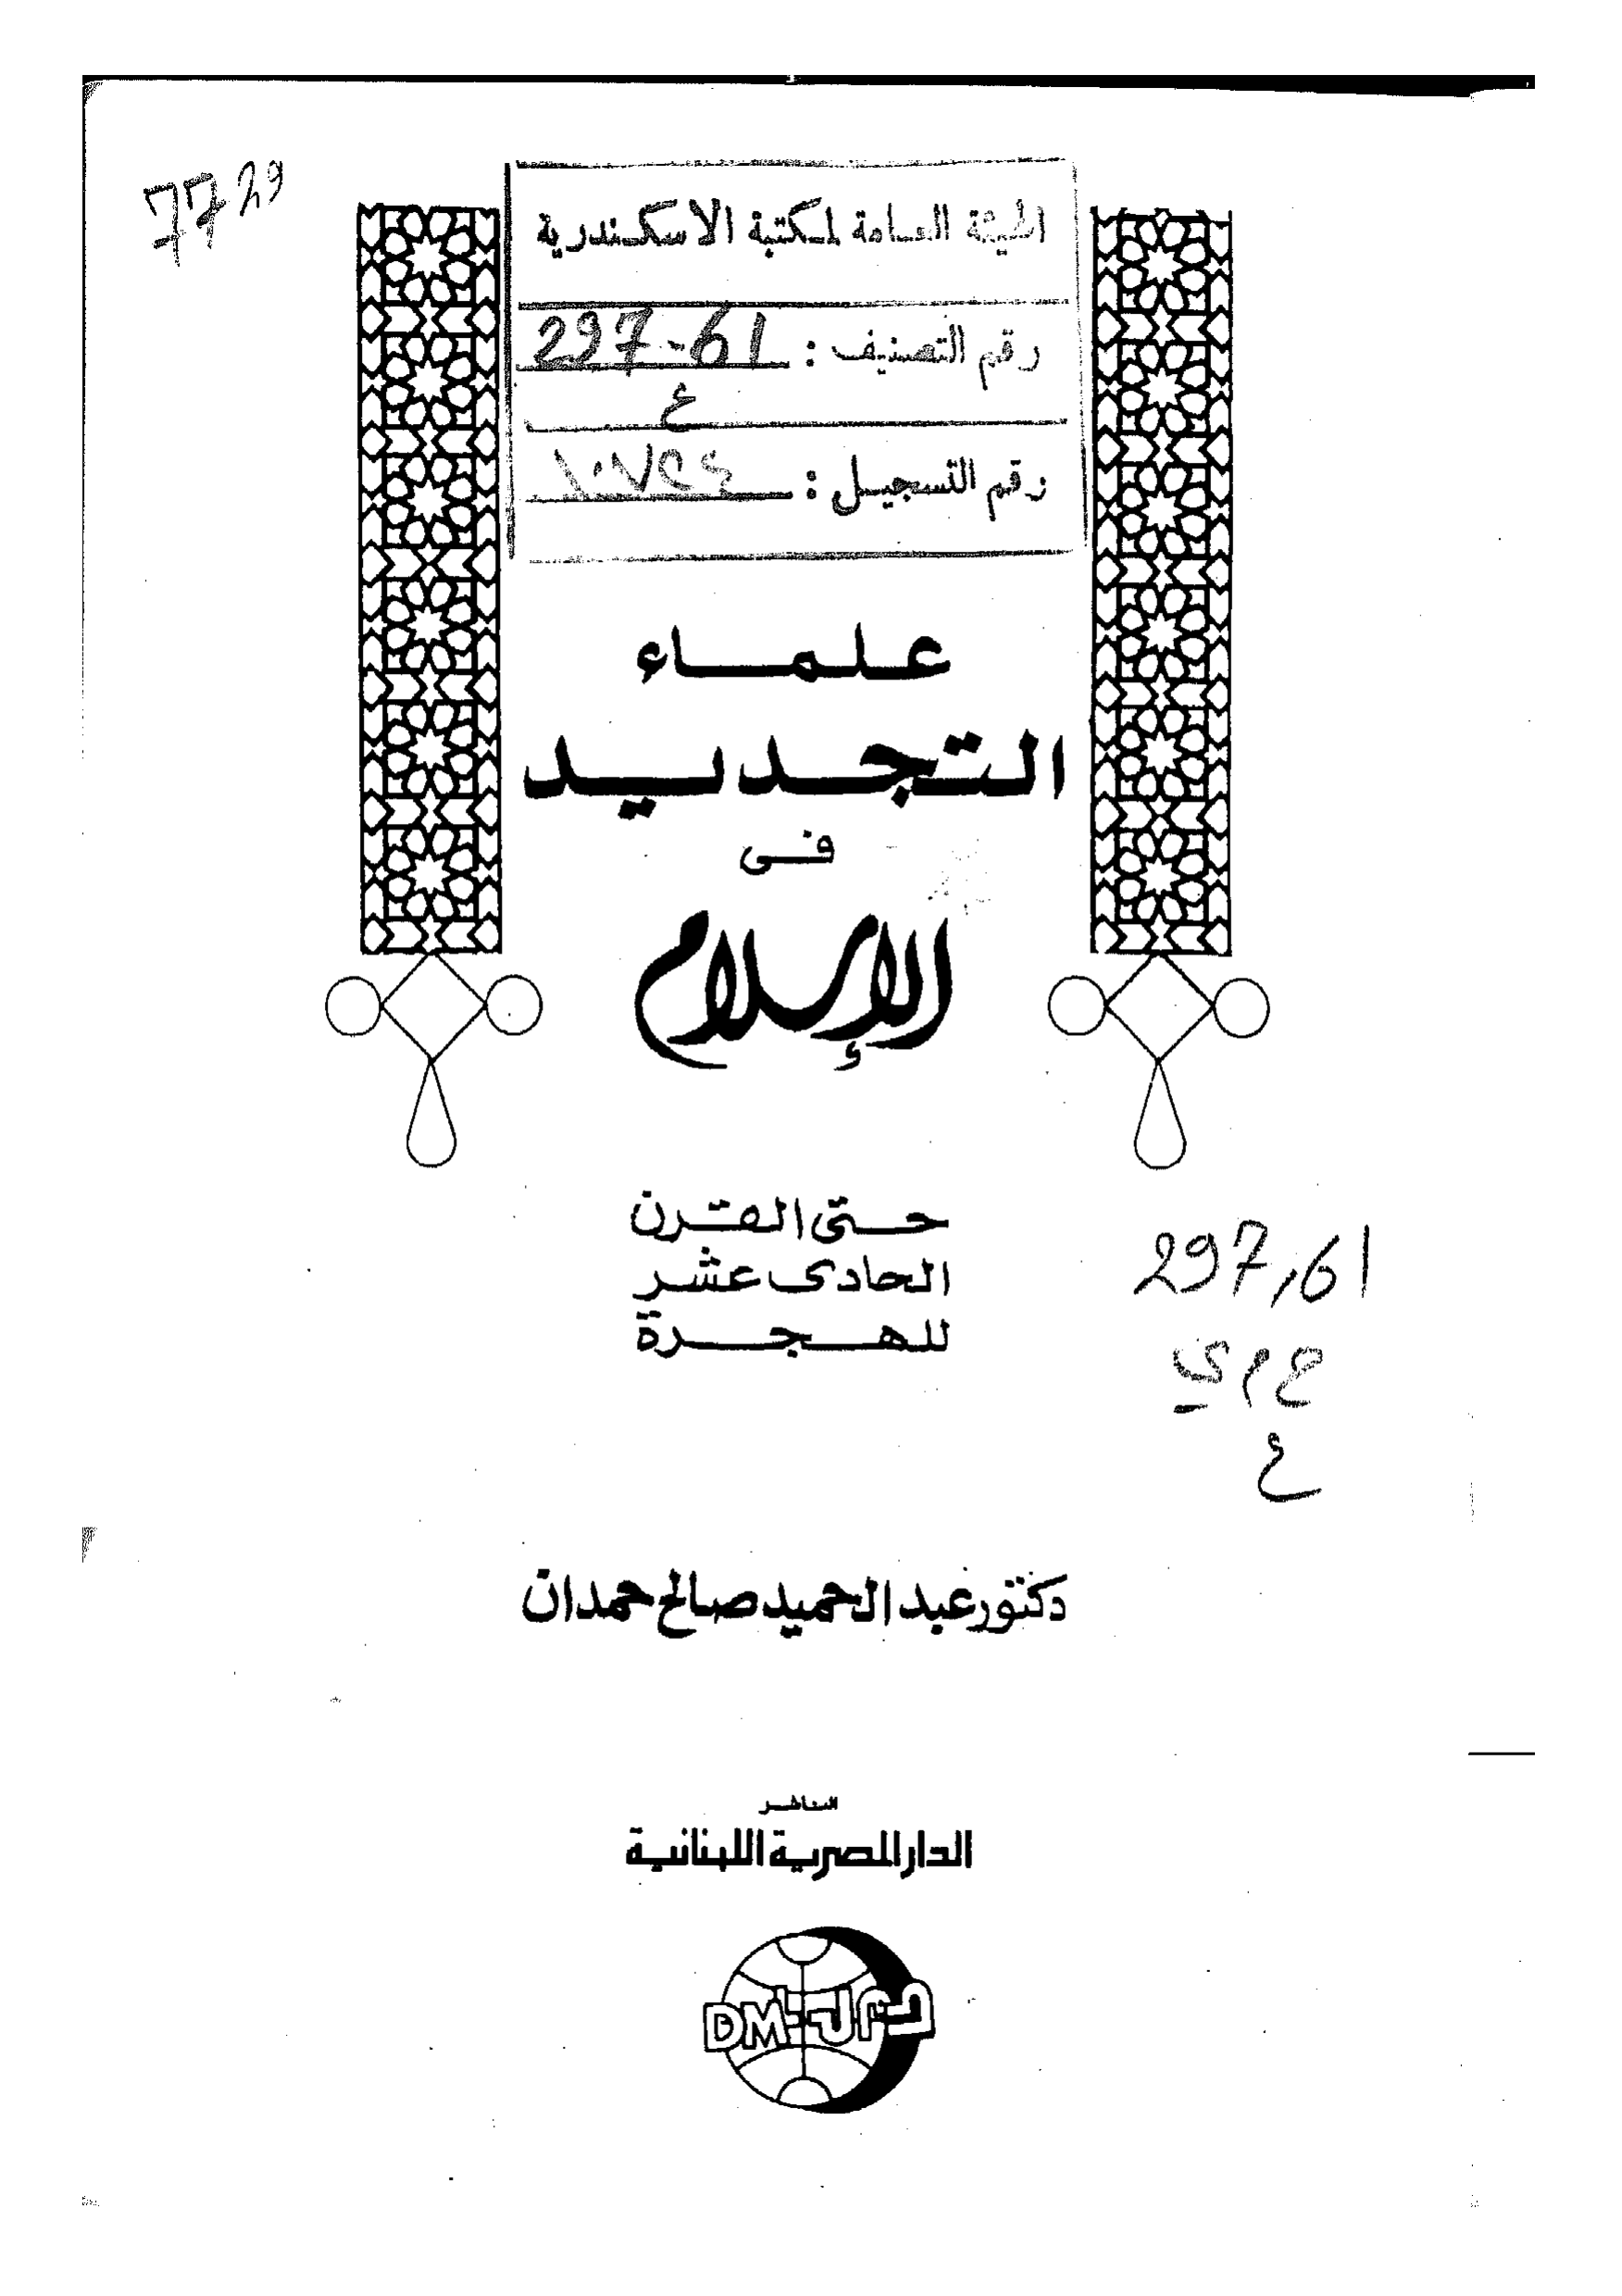 7729
الهيئة العامة لمكتبة الاسكندرية
رقم التصنيف : 297-61
ع
رقم التسجيل :
علماء
التجديد
فى
الإسلام
حتى القرن
الحادى عشر
للهجرة
297,61
ع
دكتور عبد الحميد صالح حمدان
الناشر
الدار المصرية اللبنانية
DM